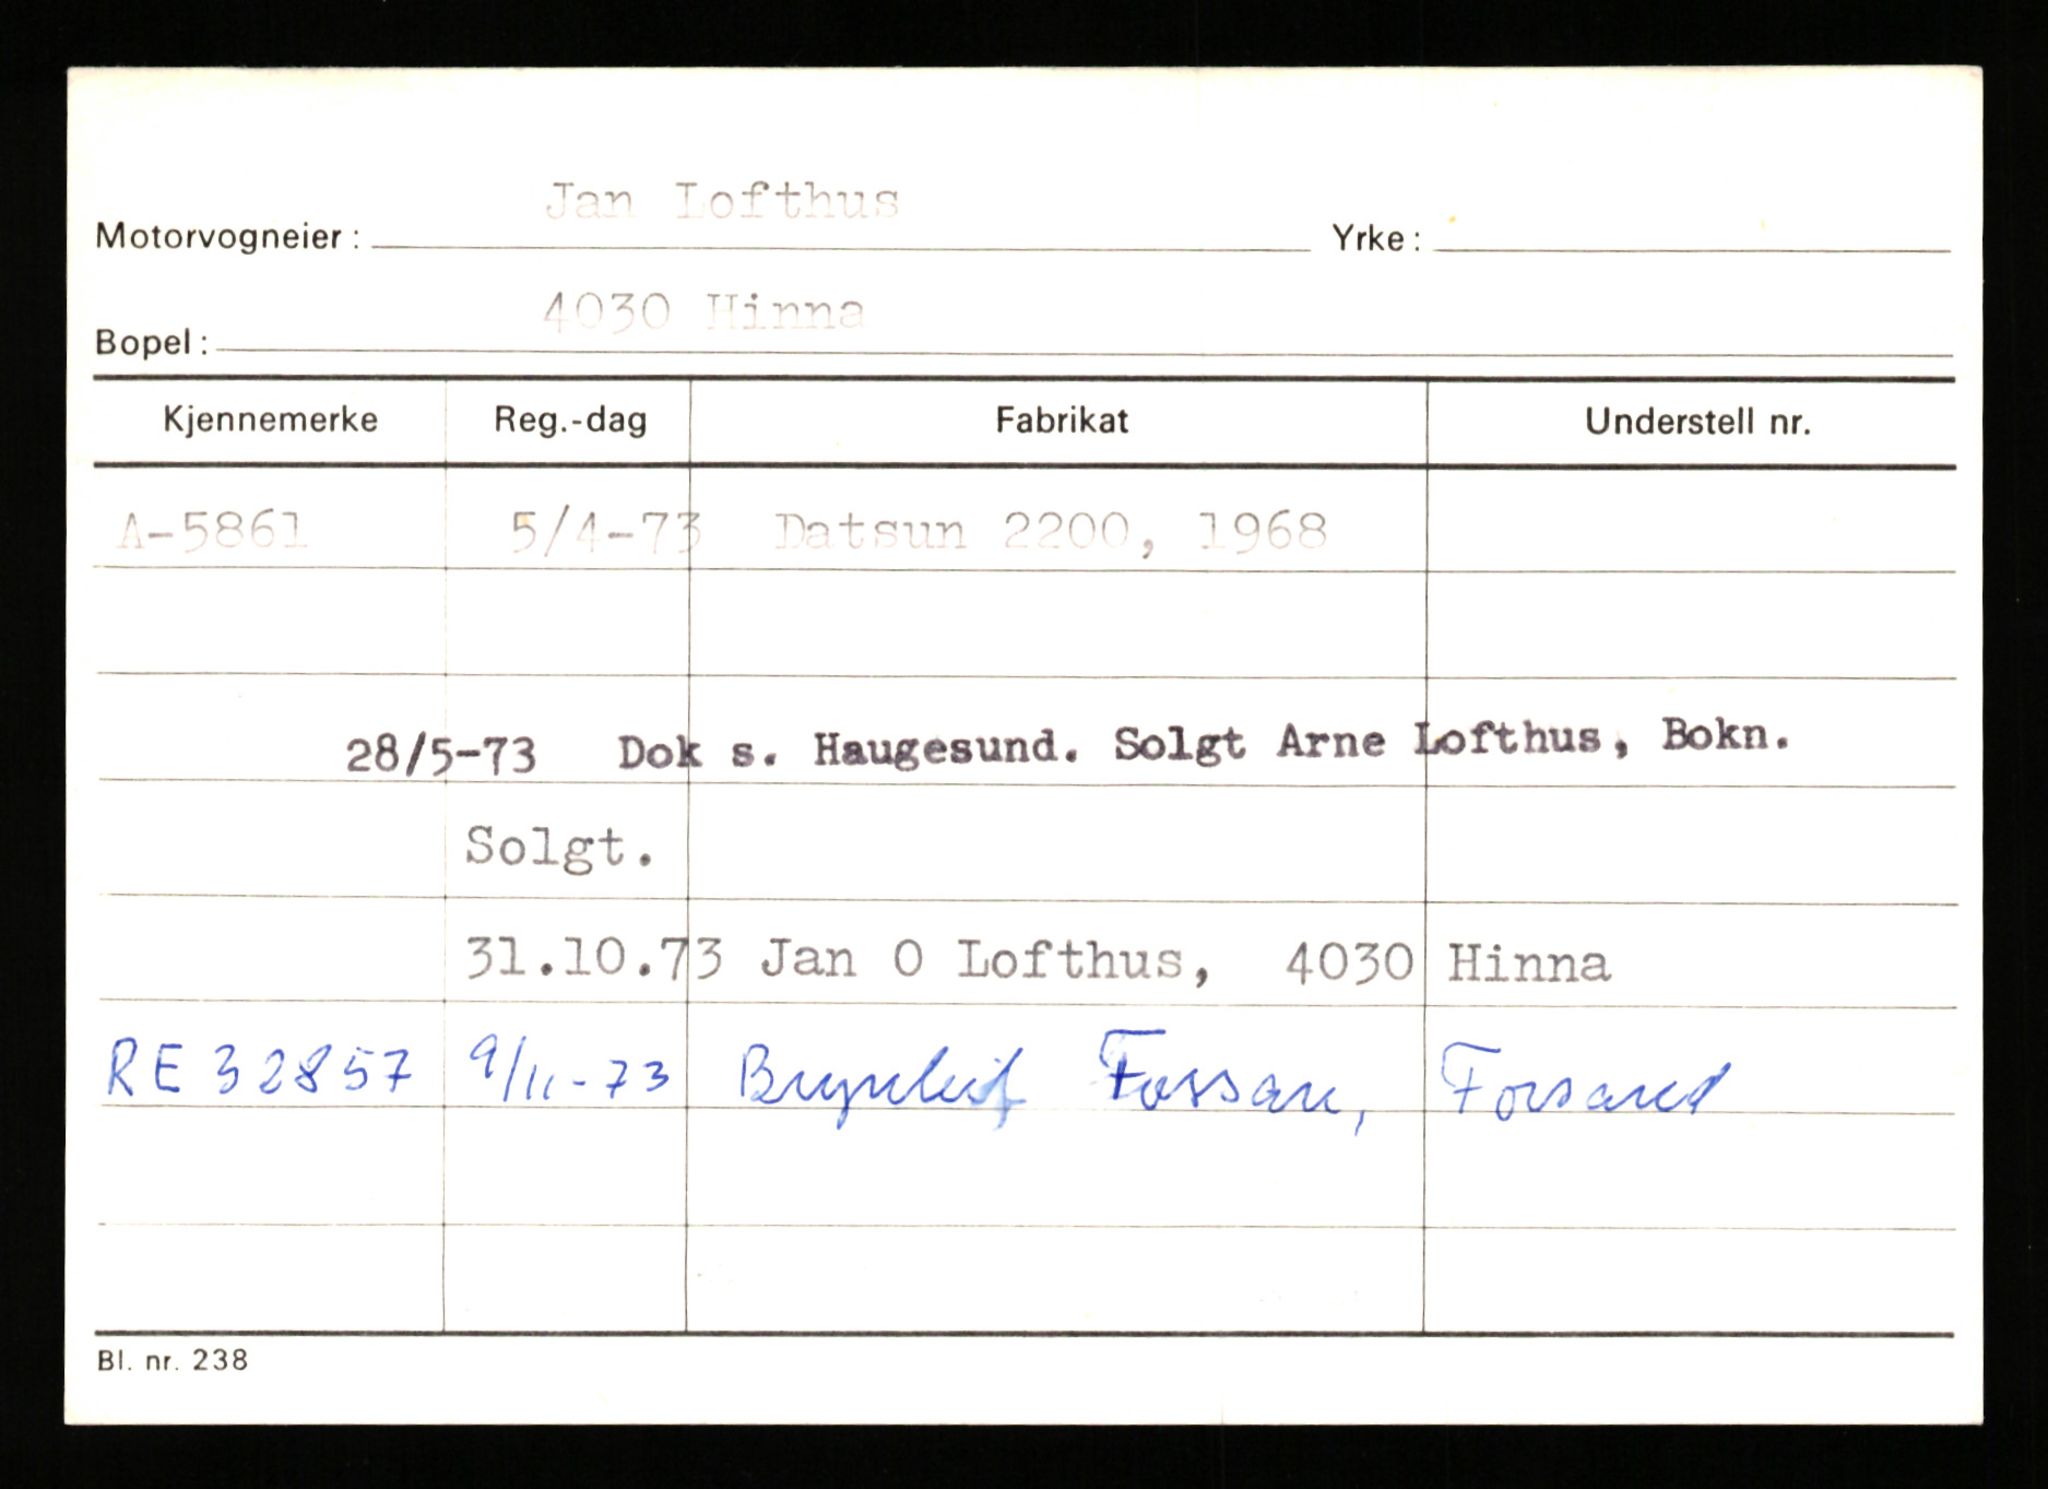 Jan Lofthus
Motorvogneier: Yrke:
4030 Hinna
Bopel:
Kjennemerke Reg.-dag Fabrikat Understell nr.
A-5861 5/4-73 Datsun 2200, 1968
28/5-73 Dok s. Haugesund. Solgt Arne Lofthus, Bokn.
Solgt.
31.10.73 Jan O Lofthus, 4030 Hinna
RE 32857 9/11-73 Brynleif Fossan, Forsand
Bl. nr. 238